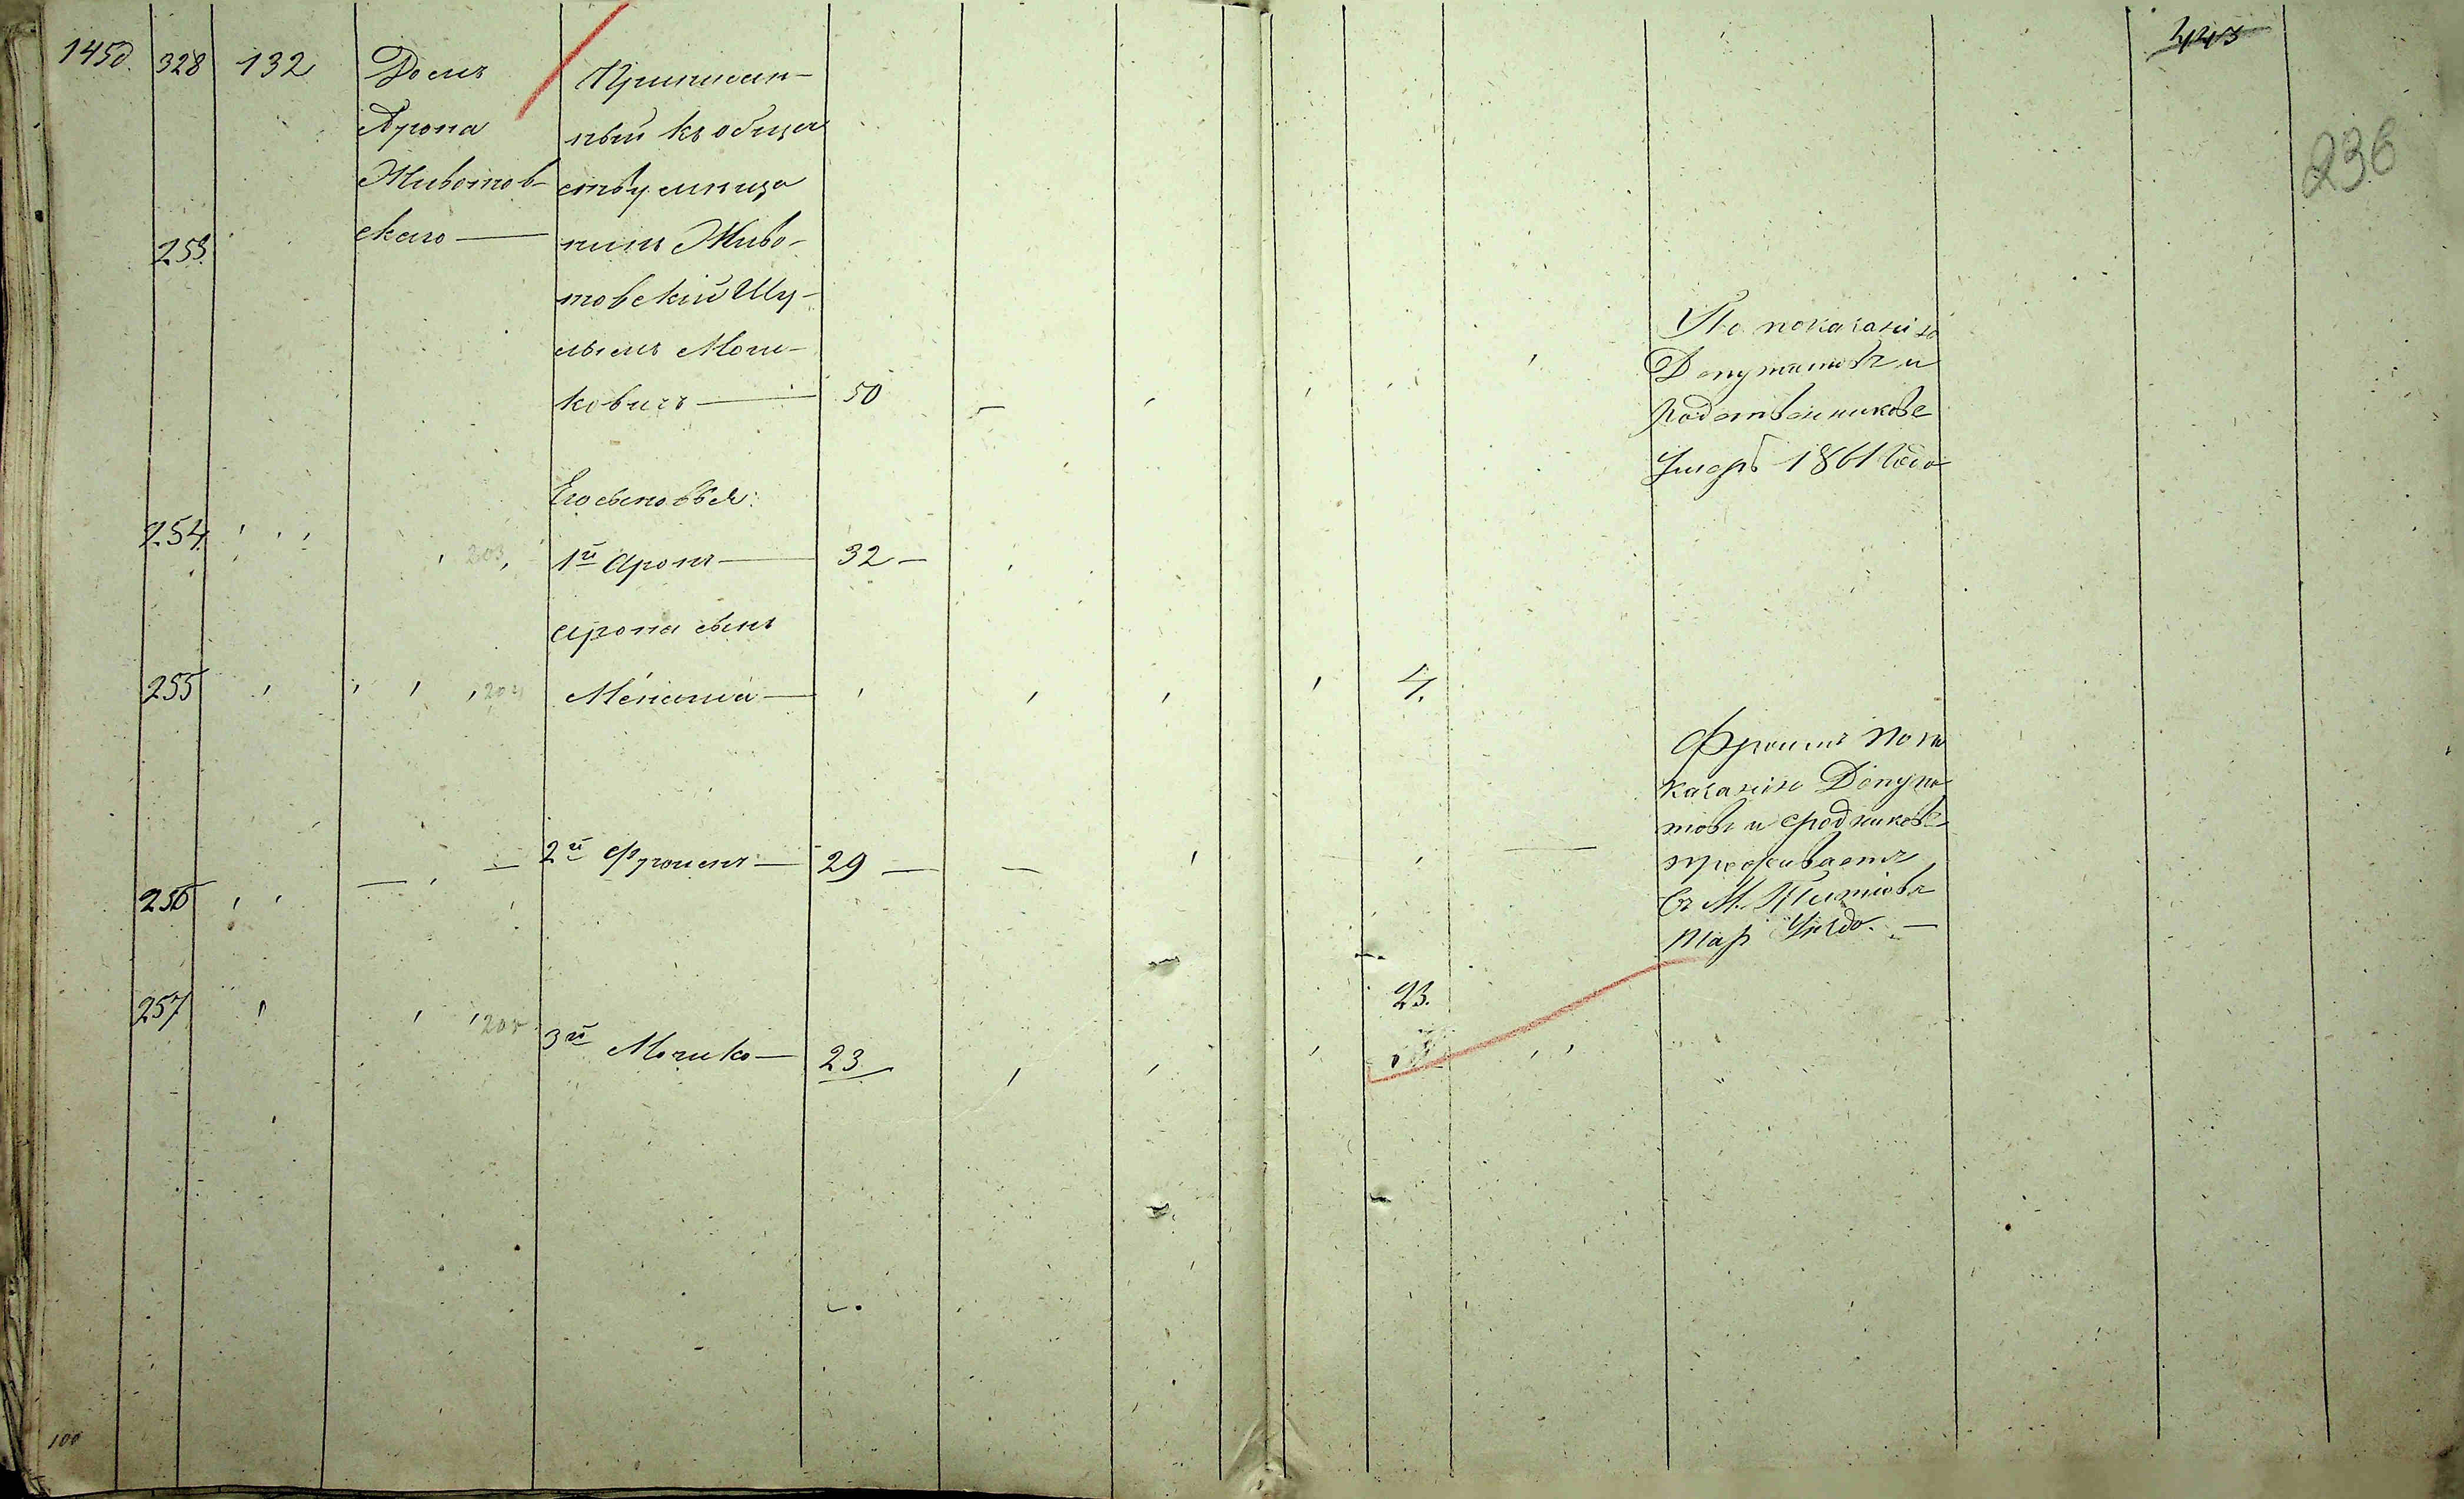 1450. 328 132
Домъ
Арона
Животов-
скаго —
Приписан-
ный къ обще
ству мѣща
нинъ Живо-
товскій Шу-
льимъ Мош-
ковичъ — 50
253
Его сыновья:
254 203 1й Аронъ — 32 —
Арона сынъ
255 204 — 4.
2й Фроимъ — 29 —
256
257 205 3й Мошко — 23
23.
443
236
По показанію
Депутатовъ и
Родственниковъ
Умеръ 1861 года
Фроимъ по по
казанію Депута
товъ и сродниковъ
проживаетъ
Въ М. Тетіовѣ
Тар Уѣзда. —
100